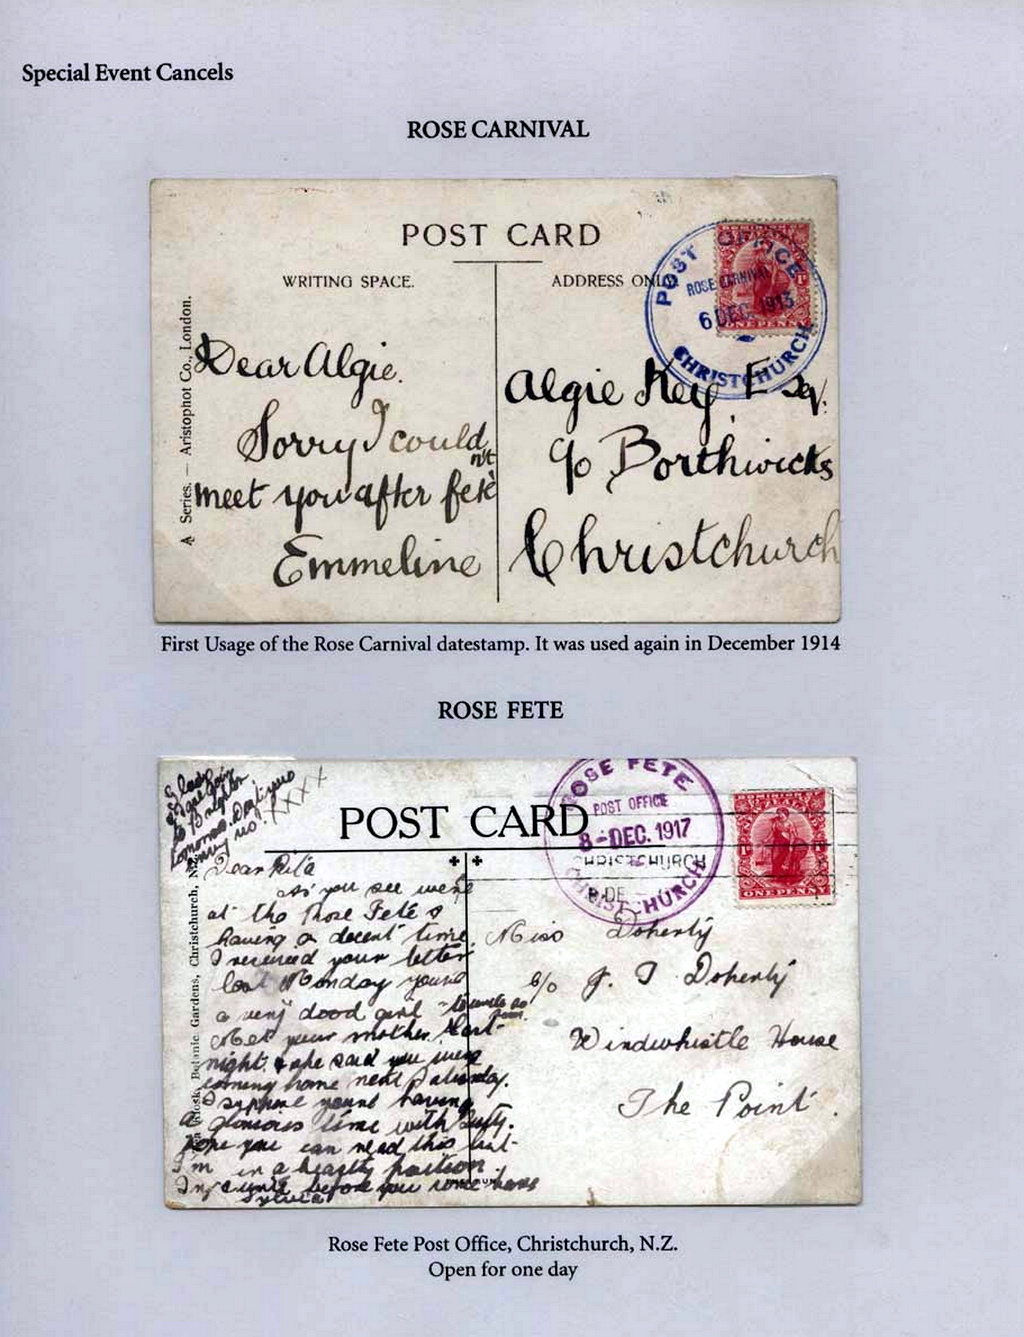 Special Event Cancels
ROSE CARNIVAL
POST CARD
WRITING SPACE.
ADDRESS ONLY
POST OFFICE
ROSE CARNIVAL
6 DEC. 1913
CHRISTCHURCH
ONE PENNY
A Series. — Aristophot Co., London.
Dear Algie.
Sorry I could
n't
meet you after fete
Emmeline
Algie Key, Esq.
c/o Borthwicks
Christchurch
First Usage of the Rose Carnival datestamp. It was used again in December 1914
ROSE FETE
POST CARD
ROSE FETE
POST OFFICE
8-DEC. 1917
CHRISTCHURCH
CHRISTCHURCH
8 DE
DOMINION
ONE PENNY
Kiosk, Botanic Gardens, Christchurch, N.Z.
Dear Rita
As you see we're
at the Rose Fete &
having a decent time.
I received your letter
last Monday
a very dood girl to write so
soon.
Met your mother last
night & she said you were
coming home next Saturday.
I suppose youre having
a glorious time with
Hope you can read this but
I'm in a
before you come home
Sylvia
Miss Doherty
c/o J. J. Doherty
Windwhistle House
The Point.
Rose Fete Post Office, Christchurch, N.Z.
Open for one day